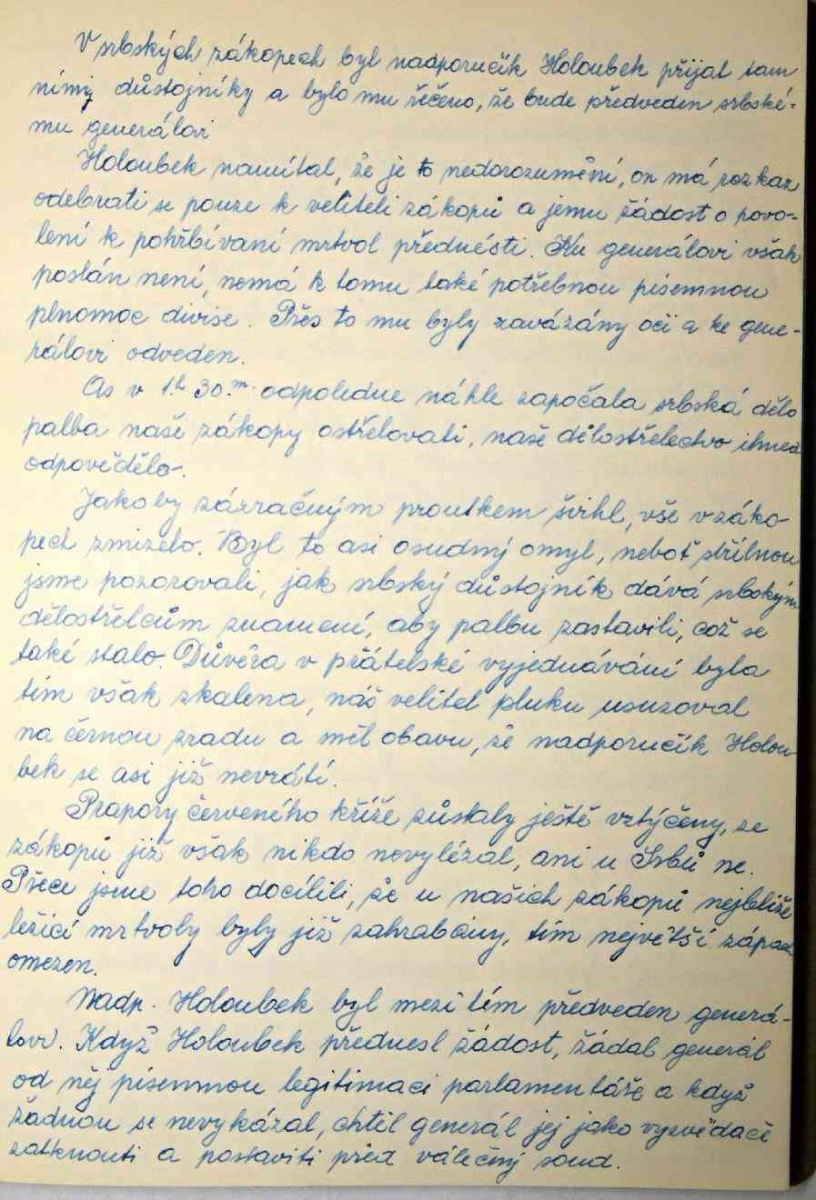 V srbských zákopech byl nadporučík Holoubek přijat tam
nímy důstojníky a bylo mu řečeno, že bude předveden srbské-
mu generálovi
Holoubek namítal, že je to nedorozumění, on má rozkaz
odebrati se pouze k veliteli zákopů a jemu žádost o povo-
lení k pohřbívaní mrtvol přednésti. Ku generálovi však
poslán není, nemá k tomu také potřebnou písemnou
plnomoc divise. Přes to mu byly zavázány oči a ke gene-
rálovi odveden.
As v 1.h 30.m odpoledne náhle započala srbská dělo
palba naše zákopy ostřelovati, naše dělostřelectvo ihned
odpovědělo.
Jako by zázračným proutkem švihl, vše v záko-
pech zmizelo. Byl to asi osudný omyl, neboť
jsme pozorovali, jak srbský důstojník dává srbským
dělostřelcům znamení, aby palbu zastavili, což se
také stalo. Důvěra v přátelské vyjednávání byla
tím však zkalena, náš velitel pluku usuzoval
na černou zradu a měl obavu, že nadporučík Holou-
bek se asi již nevrátí.
Prapory červeného kříže zůstaly ještě vztýčeny, ze
zákopů již však nikdo nevylézal, ani u Srbů ne.
Přece jsme toho docílili, že u našich zákopů nejblíže
ležící mrtvoly byly již zahrabány, tím největší zápach
omezen.
Nadp. Holoubek byl mezi tím předveden generá-
lovi. Když Holoubek přednesl žádost, žádal generál
od něj písemnou legitimaci parlamentáře a když
žádnou se nevykázal, chtěl generál jej jako vyzvědače
zatknouti a postaviti před válečný soud.